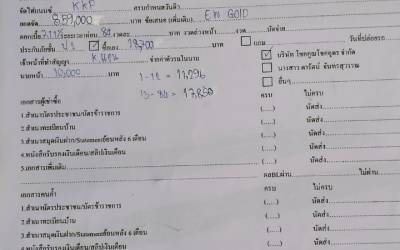 จัดไฟแนนซ์ KKP ครบกำหนดวันที่
ยอดจัด 859,000 บาท ข้อเสนอ (เพิ่มเติม) EM GOLD
ดอกเบี้ย ระยะเวลาผ่อน 84 งวดละ บาท งวดล่วงหน้า งวด บาท นัดจ่าย
ประกันภัยชั้น ป.1 ซื้อเอง 18,700 บาท แถม วันที่ปล่อยรถ
เจ้าหน้าที่ทำสัญญา จ่ายค่าตัวในนาม บริษัท โชคคูณโชคยูคาร์ จำกัด
นายหน้า 10,000 บาท 1-12 = 11,296 นางสาวดารัตน์ จันทรสุวรรณ
13-84 = 17,850 อื่นๆ
เอกสารผู้เช่าซื้อ ครบ ไม่ครบ
1.สำเนาบัตรประชาชน/บัตรข้าราชการ (.....) นัดส่ง
2.สำเนาทะเบียนบ้าน (.....) นัดส่ง
3.สำเนาสมุดเงินฝาก/Statementย้อนหลัง 6 เดือน (.....) นัดส่ง
4.หนังสือรับรองเงินเดือน/สลิปเงินเดือน (.....) นัดส่ง
5.เอกสารเพิ่มเติม (.....) นัดส่ง
ผลBLผ่าน ไม่ผ่าน
เอกสารคนค้ำ ครบ ไม่ครบ
1.สำเนาบัตรประชาชน/บัตรข้าราชการ (.....) นัดส่ง
2.สำเนาทะเบียนบ้าน (.....) นัดส่ง
3.สำเนาสมุดเงินฝาก/Statementย้อนหลัง 6 เดือน (.....) นัดส่ง
4.หนังสือรับรองเงินเดือน/สลิปเงินเดือน (.....) นัดส่ง